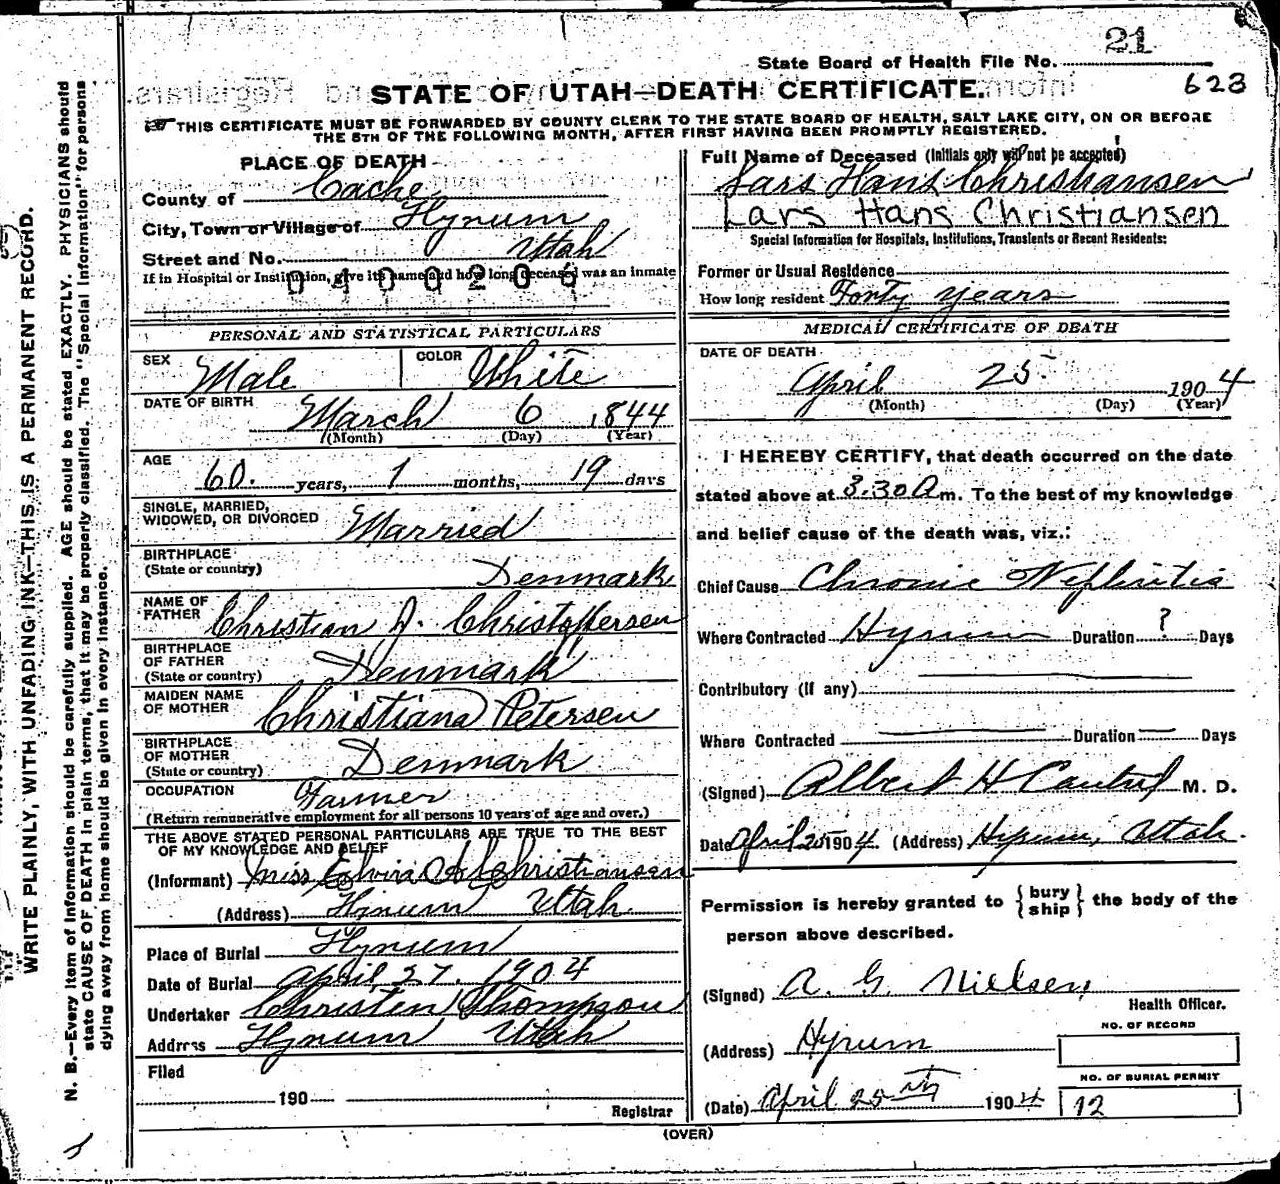 21
State Board of Health File No.
623
STATE OF UTAH—DEATH CERTIFICATE.
THIS CERTIFICATE MUST BE FORWARDED BY COUNTY CLERK TO THE STATE BOARD OF HEALTH, SALT LAKE CITY, ON OR BEFORE
THE 5TH OF THE FOLLOWING MONTH, AFTER FIRST HAVING BEEN PROMPTLY REGISTERED.
PLACE OF DEATH
County of Cache
City, Town or Village of Hyrum
Street and No. Utah
If in Hospital or Institution, give its name and how long deceased was an inmate
0400206
Full Name of Deceased (Initials only will not be accepted)
Lars Hans Christiansen
Lars Hans Christiansen
Special Information for Hospitals, Institutions, Transients or Recent Residents:
Former or Usual Residence
How long resident Forty years
PERSONAL AND STATISTICAL PARTICULARS
SEX Male COLOR White
DATE OF BIRTH March 6 1844
(Month) (Day) (Year)
AGE 60. years, 1 months, 19 days
SINGLE, MARRIED,
WIDOWED, OR DIVORCED Married
BIRTHPLACE
(State or country) Denmark
NAME OF
FATHER Christian J. Christoffersen
BIRTHPLACE
OF FATHER
(State or country) Denmark
MAIDEN NAME
OF MOTHER Christiana Petersen
BIRTHPLACE
OF MOTHER
(State or country) Denmark
OCCUPATION Farmer
(Return remunerative employment for all persons 10 years of age and over.)
THE ABOVE STATED PERSONAL PARTICULARS ARE TRUE TO THE BEST
OF MY KNOWLEDGE AND BELIEF
(Informant) Miss Elvira A Christiansen
(Address) Hyrum Utah
Place of Burial Hyrum
Date of Burial April 27. 1904
Undertaker Christen Thompson
Address Hyrum Utah
Filed
190
Registrar
MEDICAL CERTIFICATE OF DEATH
DATE OF DEATH
April 25 1904
(Month) (Day) (Year)
I HEREBY CERTIFY, that death occurred on the date
stated above at 3.30 A m. To the best of my knowledge
and belief cause of the death was, viz.:
Chief Cause Chronic Nephritis
Where Contracted Hyrum Duration ? Days
Contributory (If any)
Where Contracted Duration Days
(Signed) Albert H Cantril M. D.
Date April 25 1904. (Address) Hyrum, Utah.
Permission is hereby granted to {bury ship} the body of the
person above described.
(Signed) A. G. Nielsen
Health Officer.
(Address) Hyrum
NO. OF RECORD
NO. OF BURIAL PERMIT
(Date) April 25th 1904 12
(OVER)
WRITE PLAINLY, WITH UNFADING INK—THIS IS A PERMANENT RECORD.
N. B.—Every item of information should be carefully supplied. AGE should be stated EXACTLY. PHYSICIANS should
state CAUSE OF DEATH in plain terms, that it may be properly classified. The "Special Information" for persons
dying away from home should be given in every instance.